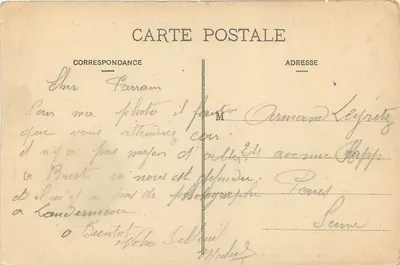 CARTE POSTALE
CORRESPONDANCE
ADRESSE
Cher Parrain
Pour ma photo il faut
que vous attendiez car
il n'y a pas moyen d'aller
a Brest ca nous est défendu
et il n'y a pas de photographe
a Landerneau
a Bientot
Votre
M Armand
avenue Rapp
Paris
Seine